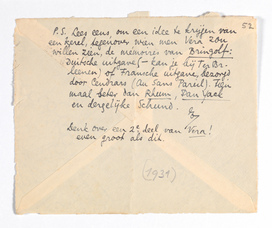 52
P.S. Lees eens, om een idee te krijgen van
een kerel, tegenover wien men Vera zou
willen zien, de memoires van Bringolf:
Duitsche uitgave (- kan je bij Ter Br-
leenen) of Fransche uitgave, bezorgd
door Cendrars (Au Sans Pareil). Tien
maal beter dan Rheum, Dan Yack
en dergelijke Schund.
Denk over een 2e deel van 'Vera'!
even groot als dit.
(1931)